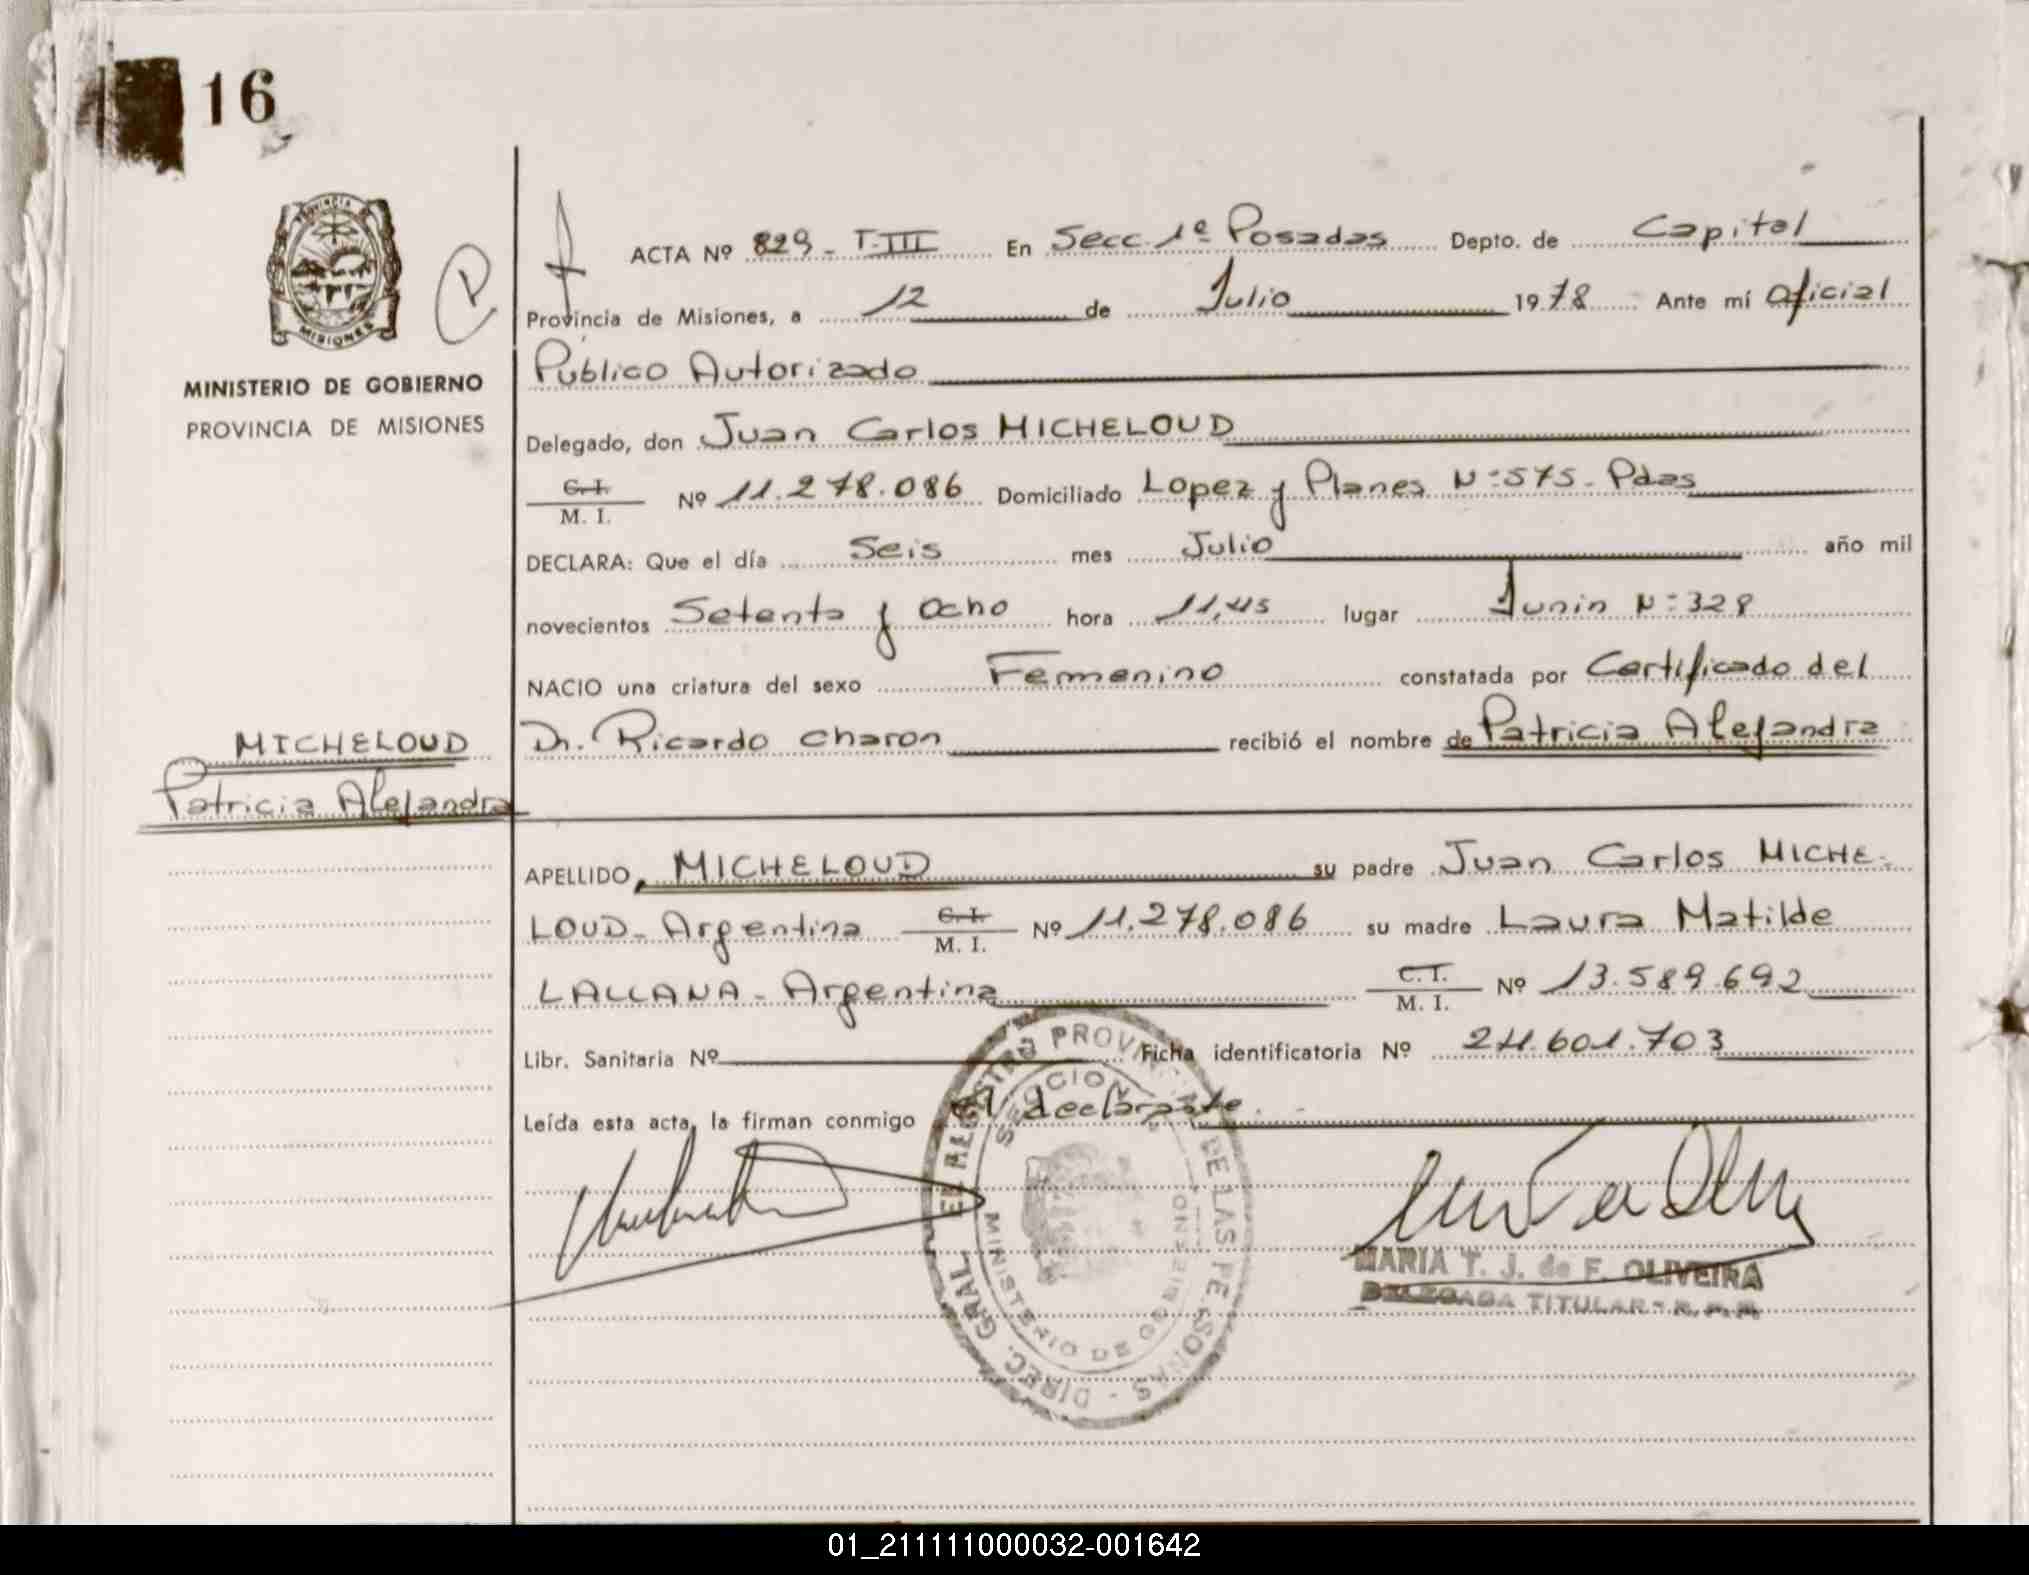 16
PROVINCIA DE
MISIONES
MINISTERIO DE GOBIERNO
PROVINCIA DE MISIONES
ACTA Nº 829 - T-III En Secc. 1ª Posadas Depto. de Capital
Provincia de Misiones, a 12 de Julio 1978 Ante mí Oficial
Público Autorizado
Delegado, don Juan Carlos MICHELOUD
C. I.
M. I. Nº 11.278.086 Domiciliado Lopez y Planes Nº 575 - Pdas
DECLARA: Que el día Seis mes Julio año mil
novecientos Setenta y Ocho hora 11,45 lugar Junin Nº 328
NACIO una criatura del sexo Femenino constatada por Certificado del
Dr. Ricardo Charon recibió el nombre de Patricia Alejandra
MICHELOUD
Patricia Alejandra
APELLIDO, MICHELOUD su padre Juan Carlos MICHE-
LOUD - Argentina C. I. M. I. Nº 11.278.086 su madre Laura Matilde
LALLANA - Argentina C. I. M. I. Nº 13.589.692
Libr. Sanitaria Nº Ficha identificatoria Nº 24.601.703
Leída esta acta, la firman conmigo el declarante.
DIREC. GRAL. DEL REGISTRO PROVINCIAL DE LAS PERSONAS
SECCION 1ª
MINISTERIO DE GOBIERNO
MARIA T. J. de F. OLIVEIRA
DELEGADA TITULAR - R. P. P.
01_211111000032-001642